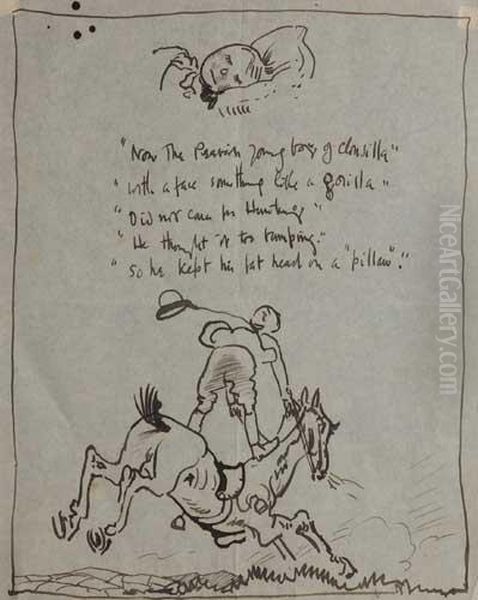 "Now The Peevish young boys of Clonsilla"
"With a face something like a gorilla"
"Did not care for Hunting"
"He thought it too
"So he kept his fat head on a "pillow"."
NiceArtGallery.com